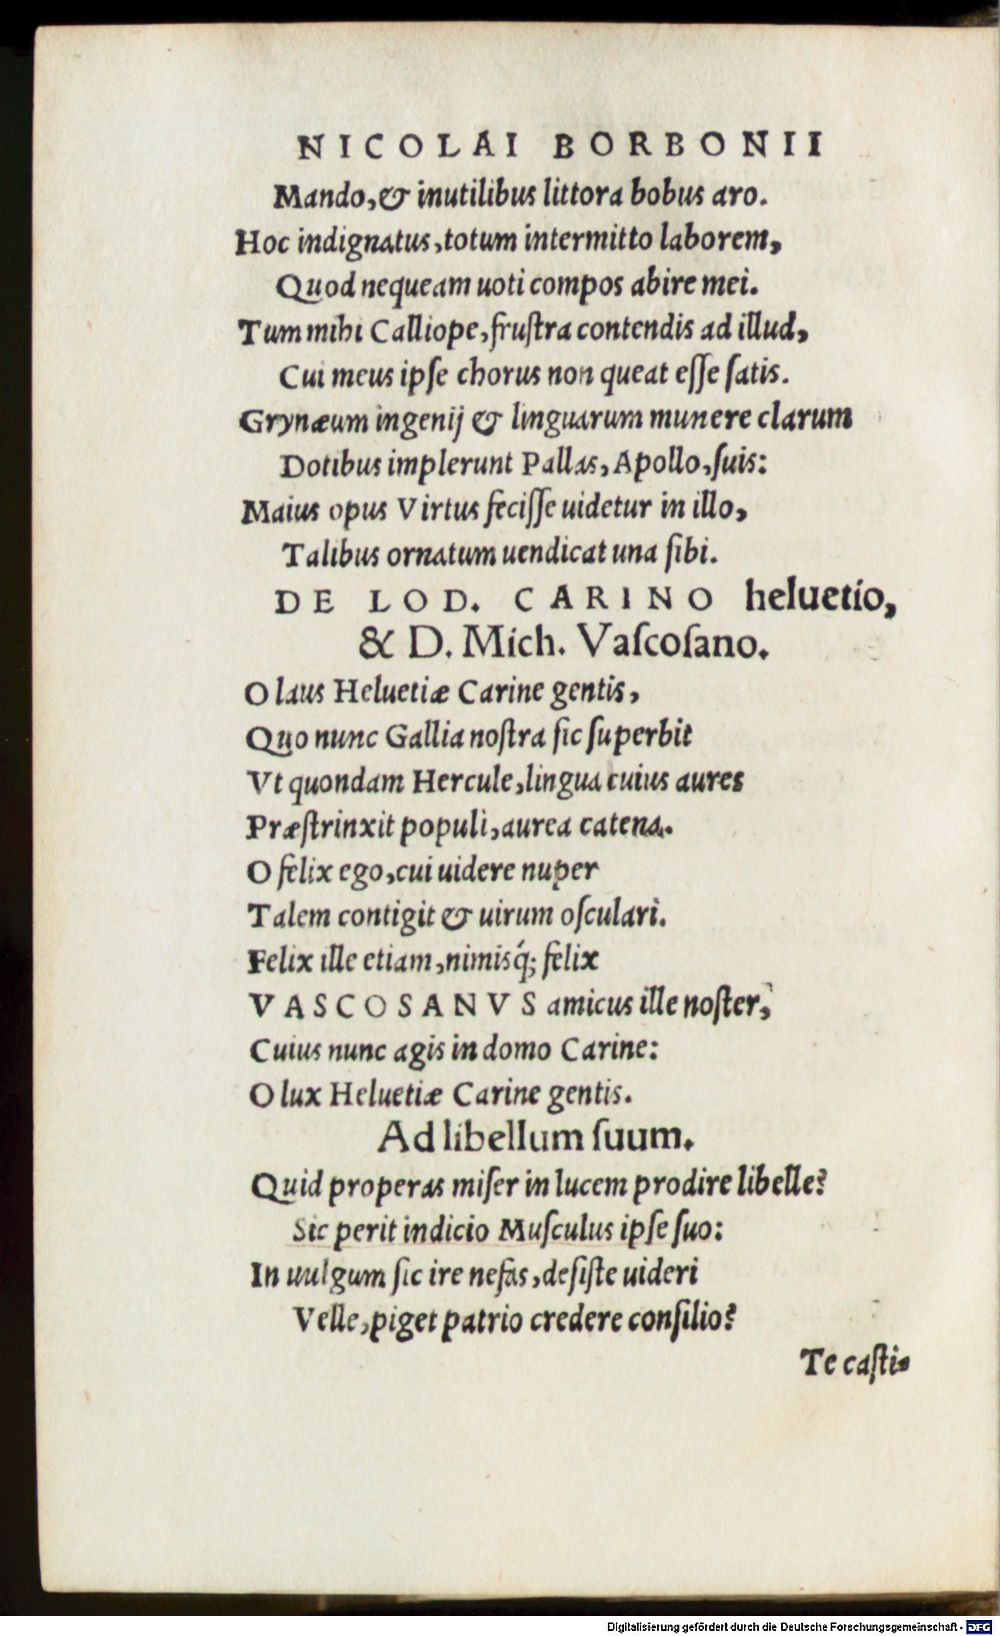 NICOLAI BORBONII
Mando, & inutilibus littora bobus aro.
Hoc indignatus, totum intermitto laborem,
Quod nequeam uoti compos abire mei.
Tum mihi Calliope, frustra contendis ad illud,
Cui meus ipſe chorus non queat eſſe ſatis.
Grynæum ingenij & linguarum munere clarum
Dotibus implerunt Pallas, Apollo, ſuis:
Maius opus Virtus feciſſe uidetur in illo,
Talibus ornatum uendicat una ſibi.
DE LOD. CARINO heluetio,
& D. Mich. Vaſcoſano.
O laus Heluetiæ Carine gentis,
Quo nunc Gallia noſtra ſic ſuperbit
Vt quondam Hercule, lingua cuius aures
Præſtrinxit populi, aurea catena.
O felix ego, cui uidere nuper
Talem contigit & uirum oſculari.
Felix ille etiam, nimisq́; felix
VASCOSANVS amicus ille noſter,
Cuius nunc agis in domo Carine:
O lux Heluetiæ Carine gentis.
Ad libellum ſuum.
Quid properas miſer in lucem prodire libelle?
Sic perit indicio Muſculus ipſe ſuo:
In uulgum ſic ire nefas, deſiſte uideri
Velle, piget patrio credere conſilio?
Te caſti-
Digitalisierung gefördert durch die Deutsche Forschungsgemeinschaft - DFG